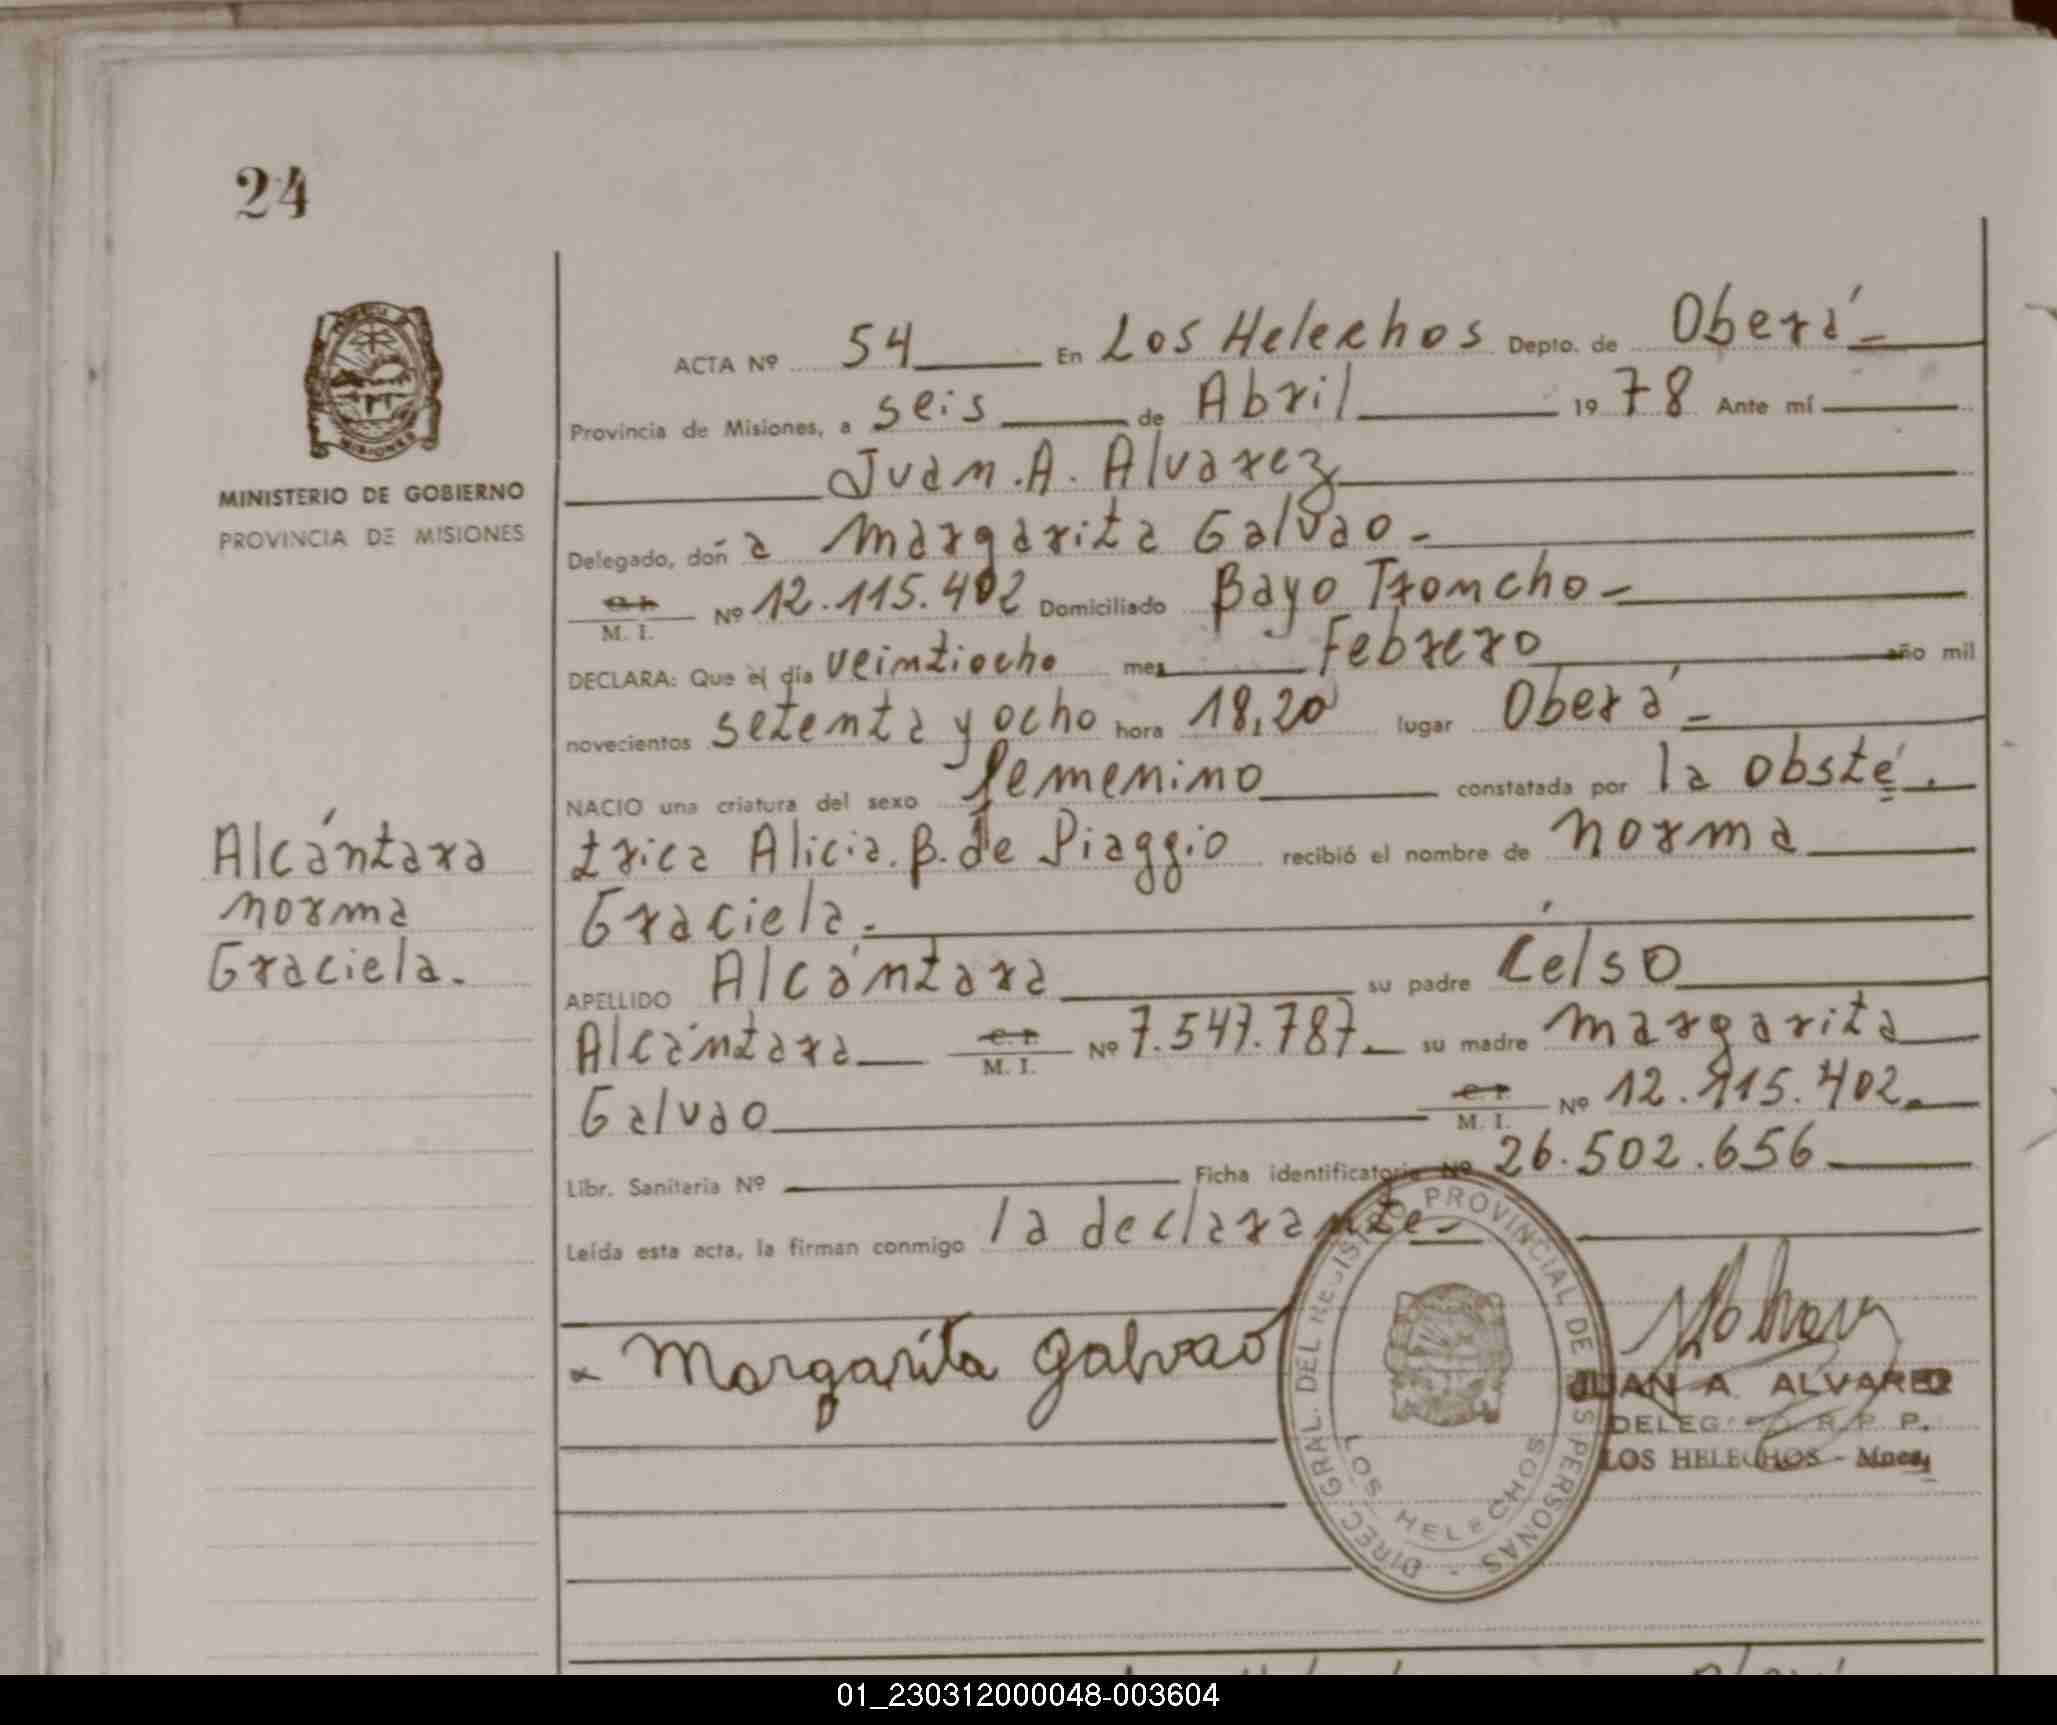 24
MINISTERIO DE GOBIERNO
PROVINCIA DE MISIONES
Alcántara
Norma
Graciela.
ACTA Nº 54 En Los Helechos Depto. de Oberá
Provincia de Misiones, a seis de Abril 1978 Ante mí
Juan. A. Alvarez
Delegado, doña Margarita Galvao.
M. I. Nº 12.115.402 Domiciliado Bayo Troncho
DECLARA: Que el día veintiocho mes Febrero año mil
novecientos setenta y ocho hora 18,20 lugar Oberá
NACIO una criatura del sexo femenino constatada por la obsté.
trica Alicia. B. de Piaggio recibió el nombre de Norma
Graciela.
APELLIDO Alcántara su padre Celso
Alcántara C. I. M. I. Nº 7.547.787. su madre Margarita
Galvao C. I. M. I. Nº 12.115.402.
Libr. Sanitaria Nº Ficha identificatoria Nº 26.502.656
Leída esta acta, la firman conmigo la declarante
Margarita Galvao
DIREC. GRAL. DEL REGISTRO PROVINCIAL DE LAS PERSONAS
LOS HELECHOS
JUAN A. ALVAREZ
DELEGADO R. P. P.
LOS HELECHOS - Mnes.
01_230312000048-003604